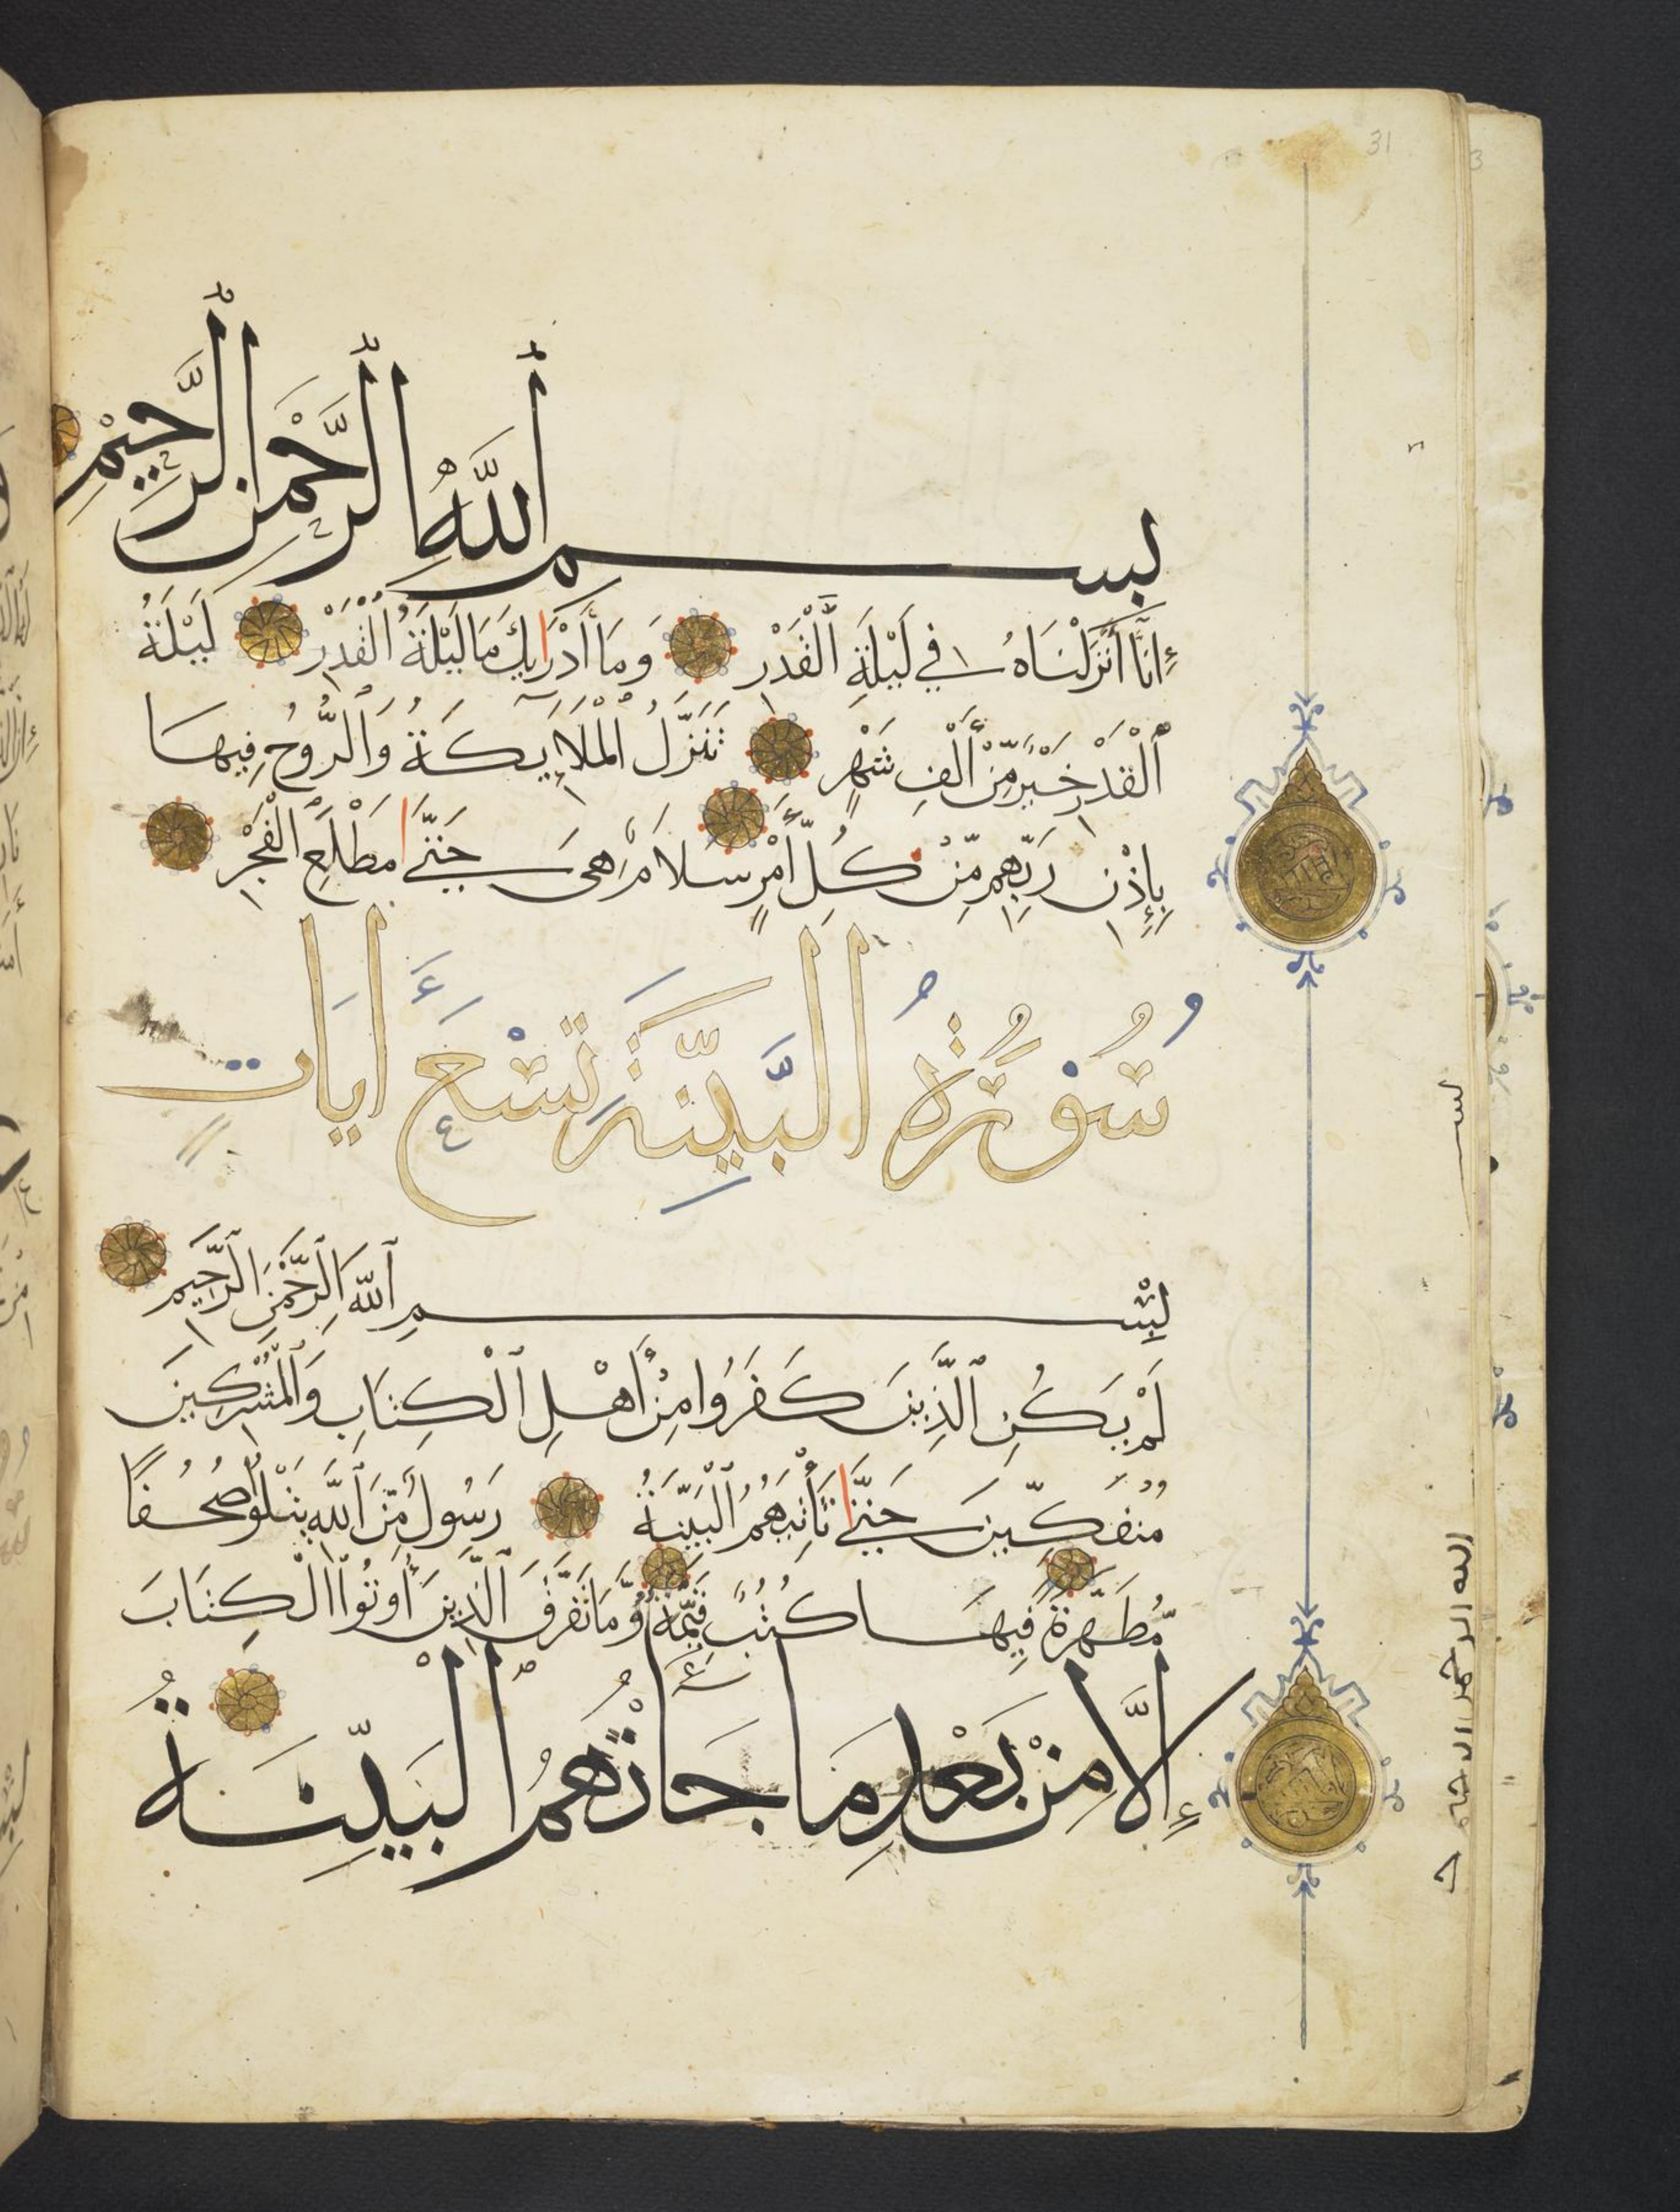 31
بسم الله الرحمن الرحيم
إِنَّا أَنزَلْنَاهُ فِي لَيْلَةِ الْقَدْرِ وَمَا أَدْرَايكَ مَا لَيْلَةُ الْقَدْرِ لَيْلَةُ
الْقَدْرِ خَيْرٌ مِّنْ أَلْفِ شَهْرٍ تَنَزَّلُ الْمَلَايِكَةُ وَالرُّوحُ فِيهَا
بِإِذْنِ رَبِّهِم مِّن كُلِّ أَمْرٍ سَلَامٌ هِيَ حَتَّى مَطْلَعِ الْفَجْرِ
سُورَةُ الْبَيِّنَة تِسْعَ آيَاتٍ
بِسْمِ اللهِ الرَّحْمَنِ الرَّحِيمِ
لَمْ يَكُنِ الَّذِينَ كَفَرُوا مِنْ أَهْلِ الْكِتَابِ وَالْمُشْرِكِينَ
مُنفَكِّينَ حَتَّى تَأْتِيَهُمُ الْبَيِّنَةُ رَسُولٌ مِّنَ اللهِ يَتْلُوا صُحُفًا
مُّطَهَّرَةً فِيهَا كُتُبٌ قَيِّمَةٌ وَمَا تَفَرَّقَ الَّذِينَ أُوتُوا الْكِتَابَ
إِلَّا مِنْ بَعْدِ مَا جَاءَتْهُمُ الْبَيِّنَةُ